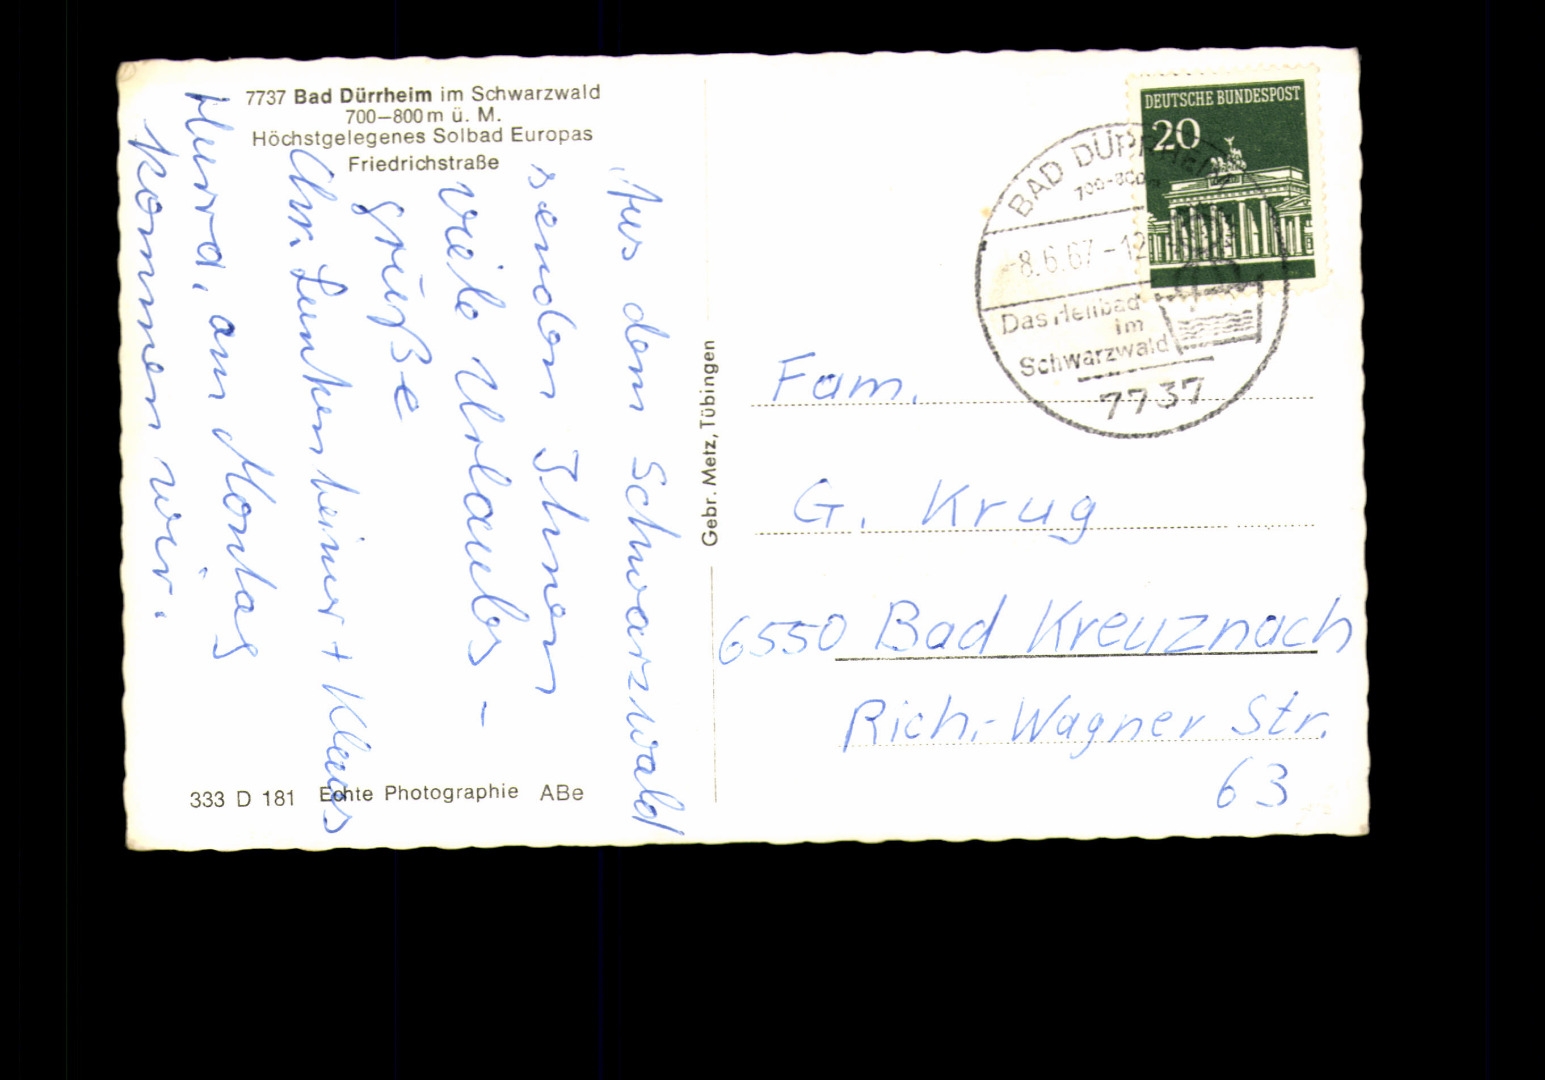 7737 Bad Dürrheim im Schwarzwald
700–800 m ü. M.
Höchstgelegenes Solbad Europas
Friedrichstraße
Aus dem Schwarzwald
senden Ihnen
viele Urlaubs-
grüße
Chr. Lunkenheimer + Klaus
Hurra, am Montag
kommen wir.
333 D 181 Echte Photographie ABe
Gebr. Metz, Tübingen
DEUTSCHE BUNDESPOST
20
BAD DÜRRHEIM
700-800m
-8.6.67-12
Das Heilbad
im
Schwarzwald
7737
Fam.
G. Krug
6550 Bad Kreuznach
Rich.-Wagner Str.
63